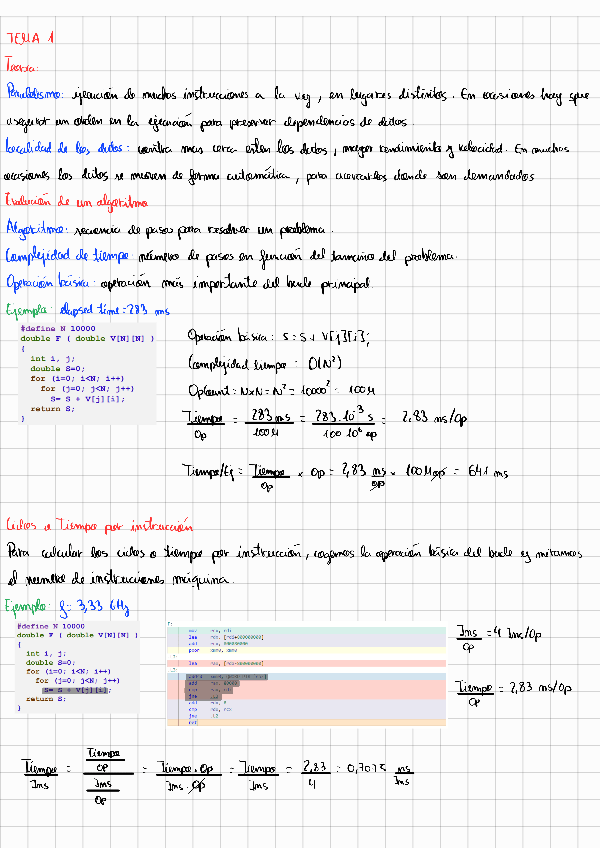 TEMA 1
Teoría:
Paralelismo: ejecución de muchas instrucciones a la vez, en lugares distintos. En ocasiones hay que
asegurar un orden en la ejecución para preservar dependencias de datos.
Localidad de los datos: contra mas cerca esten los datos, mayor rendimiento y velocidad. En muchas
ocasiones los datos se mueven de forma automática, para acercarlos donde son demandados
Evaluación de un algoritmo
Algoritmo: secuencia de pasos para resolver un problema.
Complejidad de tiempo: número de pasos en función del tamaño del problema.
Operación básica: operación más importante del bucle principal.
Ejemplo: elapsed time = 283 ms
#define N 10000
double F ( double V[N][N] )
{
int i, j;
double S=0;
for (i=0; i<N; i++)
for (j=0; j<N; j++)
S= S + V[j][i];
return S;
}
Operación básica: S = S + V[j][i];
Complejidad tiempo: O(N²)
Opcount: N×N = N² = 10000² = 100M
Tiempo/Op = 283 ms/100M = 283·10⁻³ s/100·10⁶ op = 2,83 ns/Op
Tiempo/Ej = Tiempo/Op × Op = 2,83 ns/op × 100M op = 641 ms
Ciclos o Tiempo por instrucción
Para calcular los ciclos o tiempo por instrucción, cogemos la operación básica del bucle y miramos
el numero de instrucciones máquina.
Ejemplo: f = 3,33 GHz
#define N 10000
double F ( double V[N][N] )
{
int i, j;
double S=0;
for (i=0; i<N; i++)
for (j=0; j<N; j++)
S= S + V[j][i];
return S;
}
Ins/Op = 4 Ins/Op
Tiempo/Op = 2,83 ns/Op
Tiempo/Ins = Tiempo/Op / Ins/Op = Tiempo·Op/Ins·Op = Tiempo/Ins = 2,83/4 = 0,7075 ns/Ins